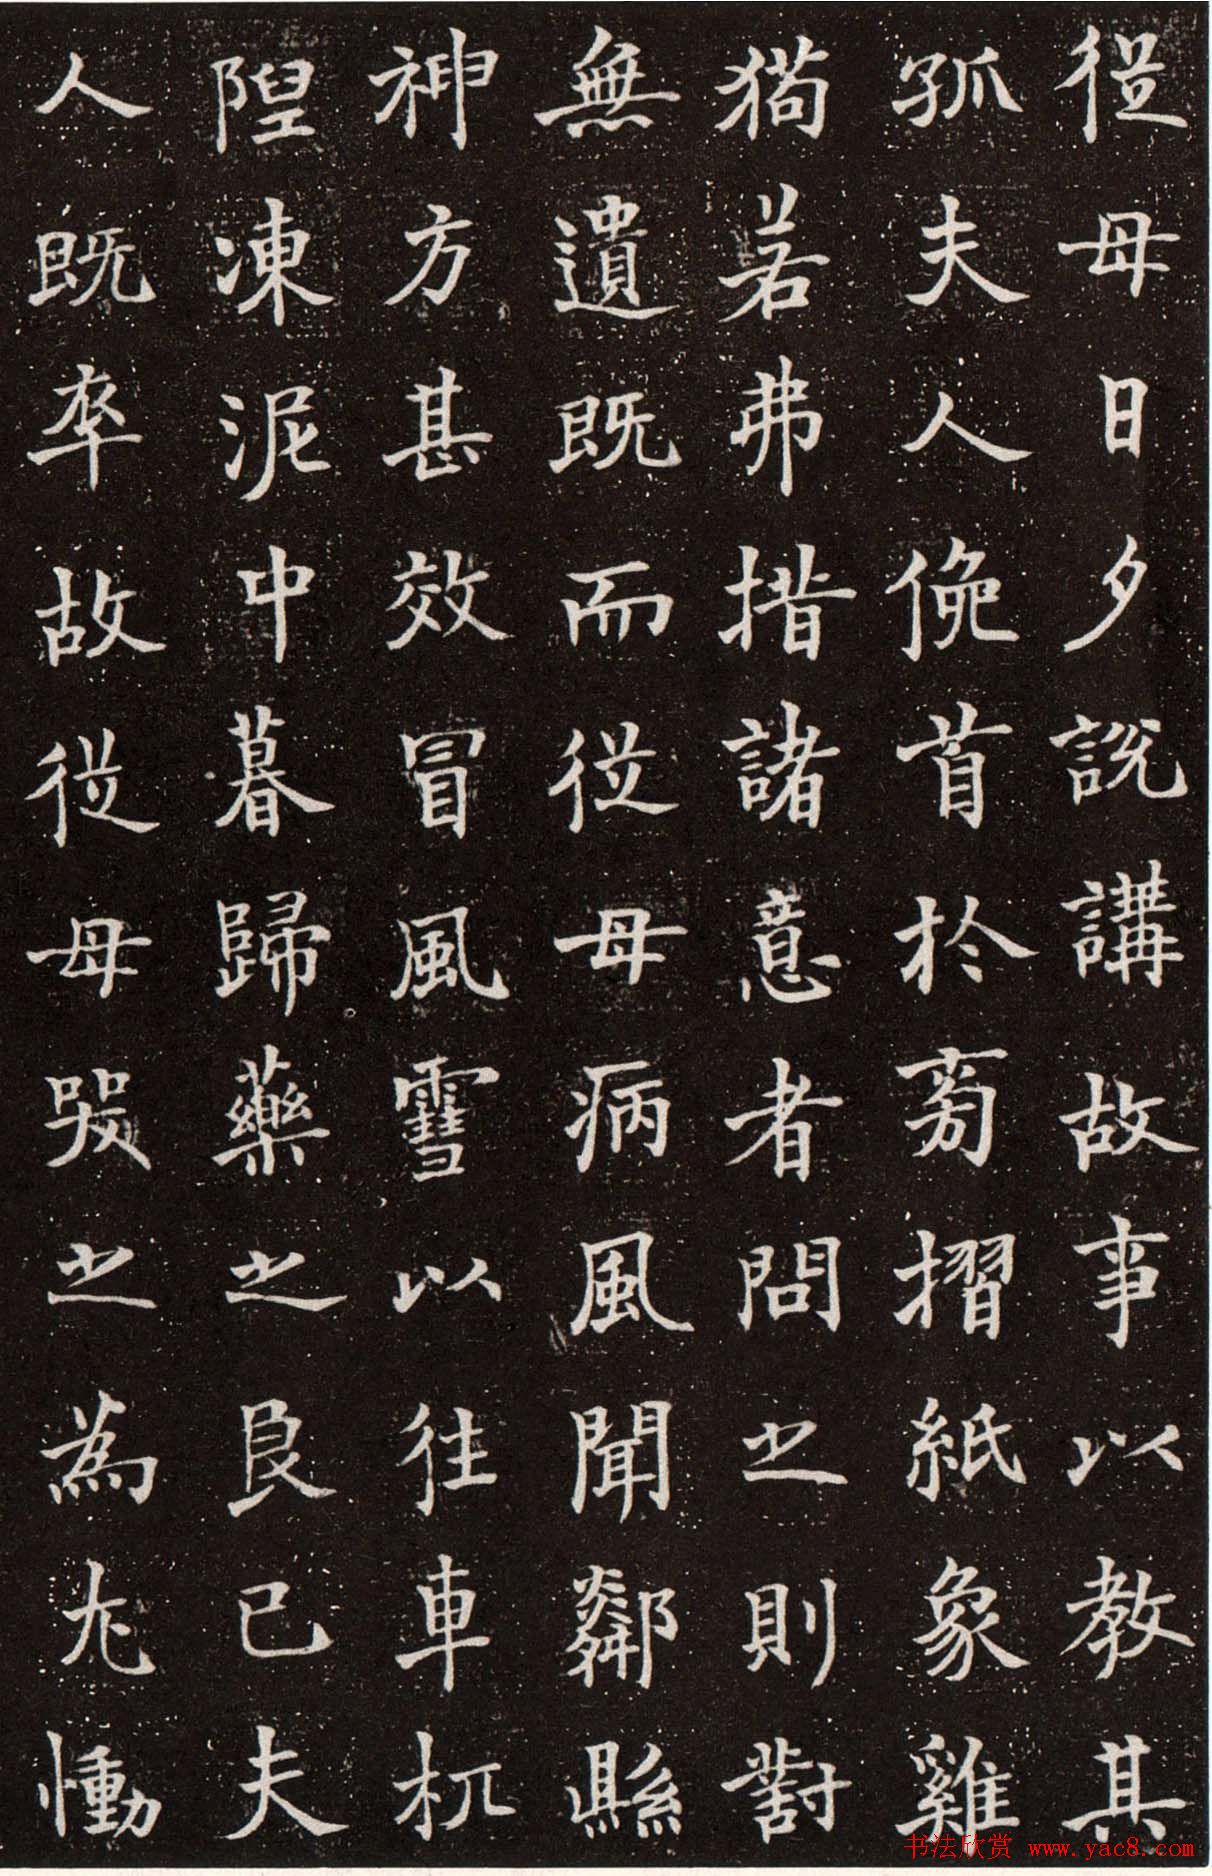 從母日夕說講故事以教其
孤夫人俛首於旁摺紙象雞
狗若弗措諸意者問之則對
無遺既而從母病風聞鄰縣
神方甚效冒風雪以往車杌
隉凍泥中暮歸藥之良已夫
人既卒故從母哭之為尤慟
书法欣赏 www.yac8.com